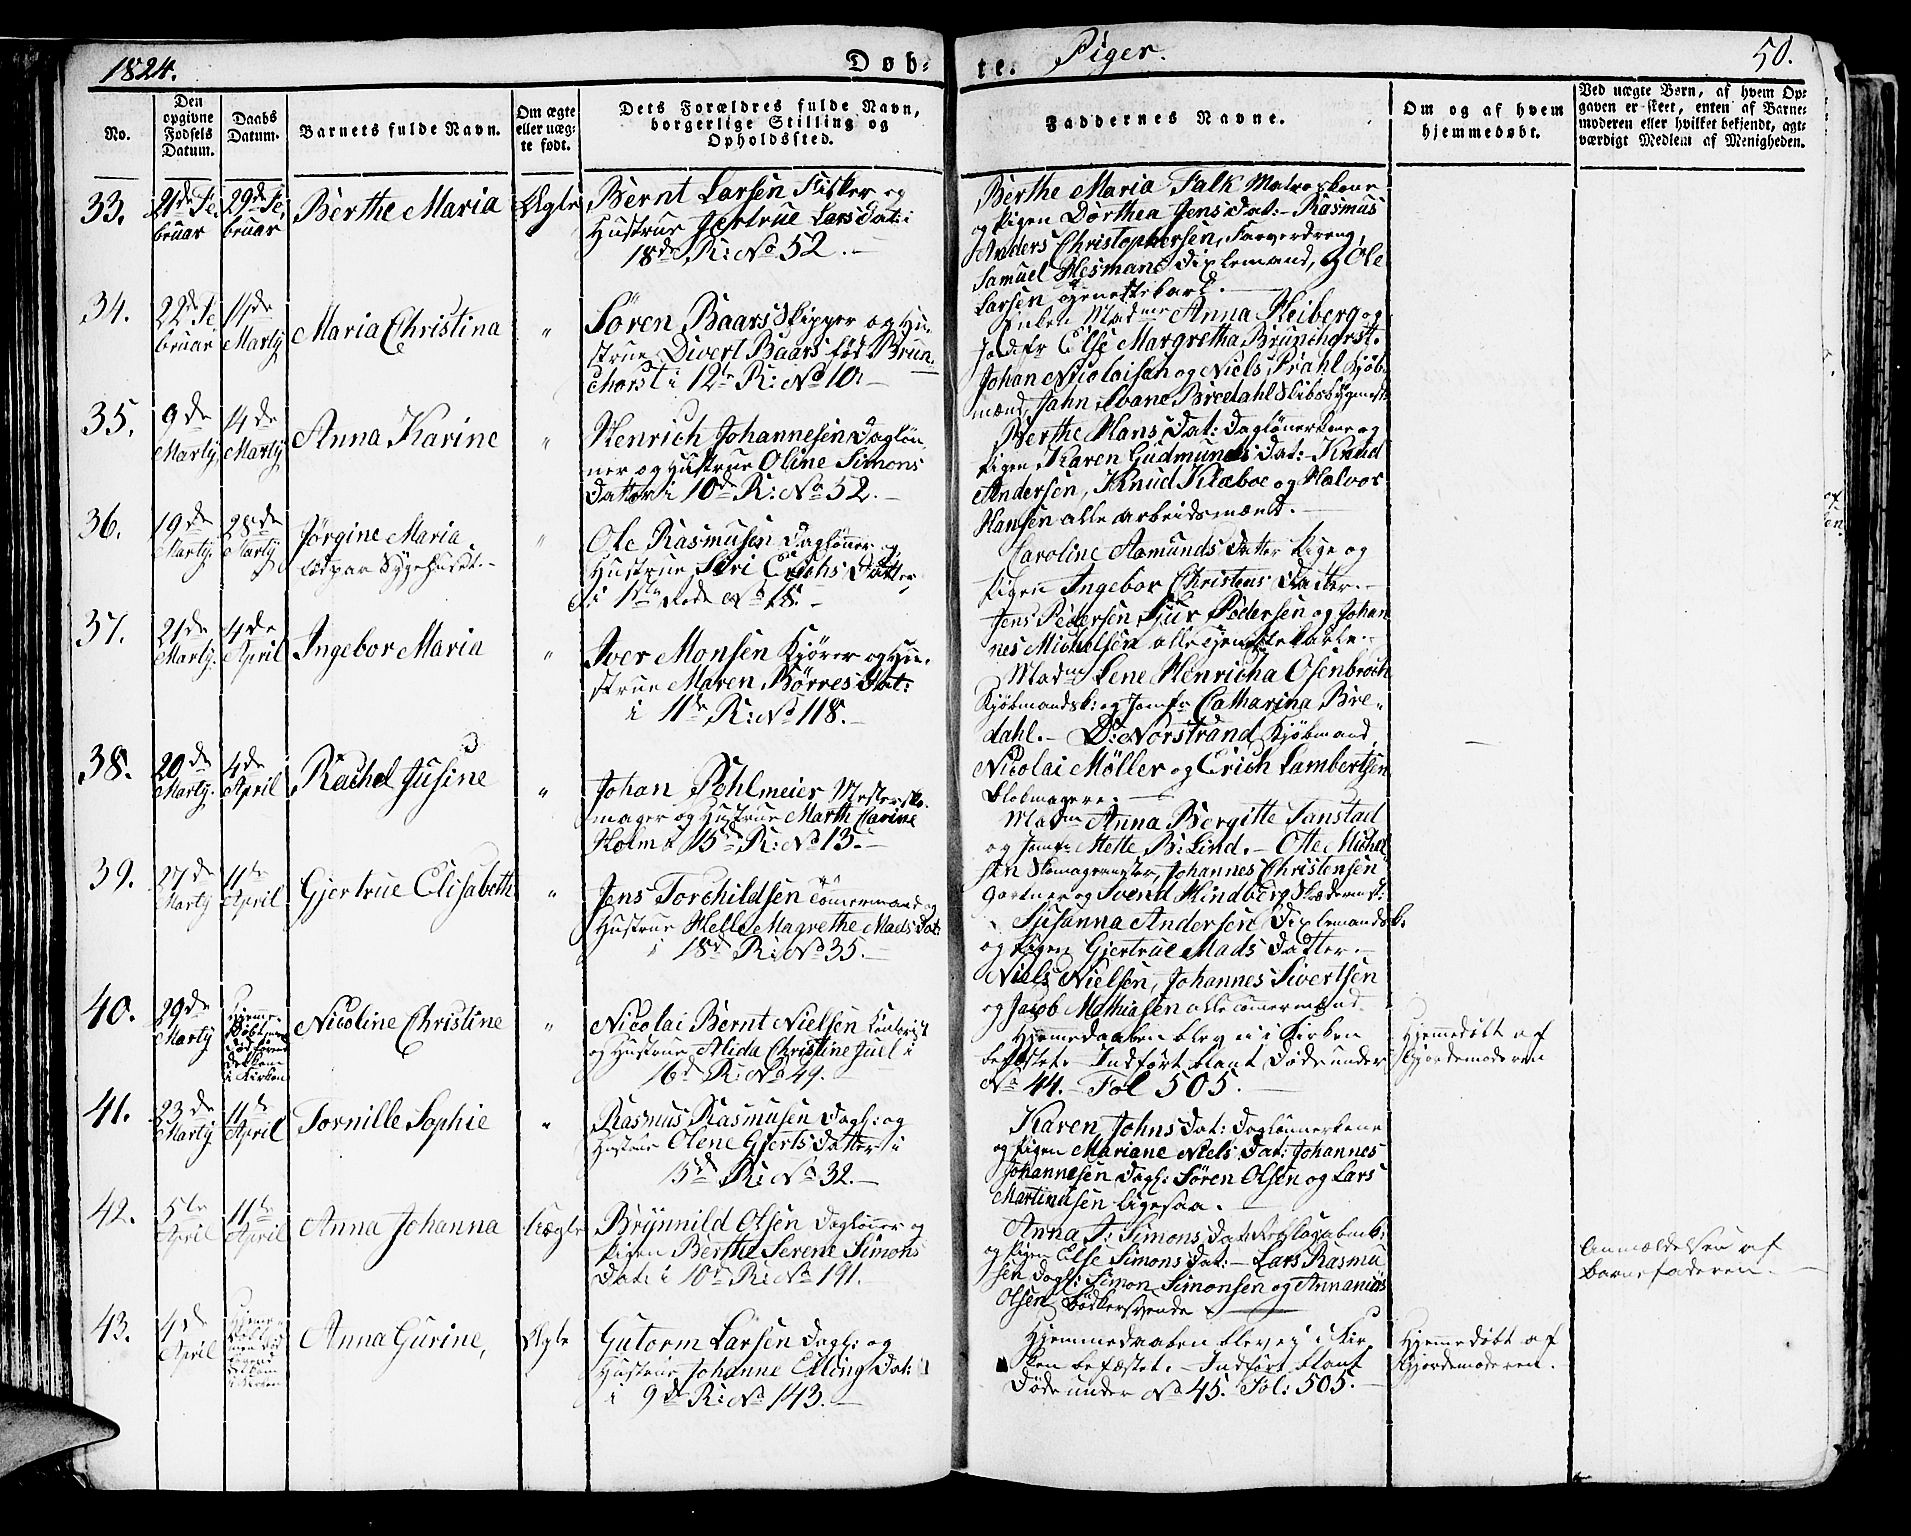 1824.
Døb-
te.
Piger.
50.
No.
Den opgivne Fødsels Datum.
Daabs Datum.
Barnets fulde Navn.
Om ægte eller uæg-
te født.
Dets Forældres fulde Navn,
borgerlige Stilling og
Opholdssted.
Faddernes Navne.
Om og af hvem
hjemmedøbt.
Ved uægte Børn, af hvem Op-
gaven er skeet, enten af Barne-
moderen eller hvilket bekjendt, agt-
værdigt Medlem af Menigheden.
33.
21de Fe-
bruar
29de Fe-
bruar
Berthe Maria
Ægte
Bernt Larsen Fisker og
Hustrue Gjertrue Lars Dat: i
18de R: No 52.
Berthe Maria Falk Matroskone
og Pigen Dorthea Jens Dat: - Rasmus
Anders Christophersen, Farverdreng,
Samuel Hesmans Diplemand, og Ole
Larsen
34.
22de Fe
bruar
14de
Martÿ
Maria Christina
"
Søren Baars Skipper og Hu-
strue Divert Baars fød Brun-
chorst i 12te R: No 10.
Madme Anna Heiberg og
Jomfr Else Margretha Brunchorst.
Johan Nicolaisen og Niels Prahl Kjøb-
mænd, Jahn Svane Bredahl Skibsbygmest
35.
9de
Martÿ
14de
Martÿ
Anna Karine
"
Henrich Johannesen Dagløn
ner og Hustrue Oline Simons
Datter i 10de R: No 52.
Berthe Hans Dat: Daglønnerkone og
Pigen Karen Gudmunds Dat: - Knud
Andersen, Knud Klæboe og Halvor
Hansen alle Arbeidsmænd.
36.
19de
Martÿ
28de
Martÿ
Jørgine Maria
fød paa Sygehuset.
"
Ole Rasmusen Dagløner og
Hustrue Siri Erichs Datter
i 1ste Rode No 18.
Caroline Aamunds Datter Pige og
Pigen Ingebor Christens Datter.
Jens Pedersen, Sjur Pedersen og Johan
nes Michelsen alle tjenestekarle.
37.
21de
Martÿ
4de
April
Ingebor Maria
"
Iver Monsen Kjører og Hu-
strue Maren Børres Dat:
i 11de R: No 118.
Madme Lene Henricha Osenbroch
Kjøbmandsk: og Jomfr Catharina Bre-
dahl. - D: Norstrand Kjøbmand,
Nicolai Møller og Erich Lambertsen
Blokmagere.
38.
20de
Martÿ
4de
April
Rachel Jusine
"
Johan Pohlmeier Mesterskо-
mager og Hustrue Marth Carine
Holm i 15de R: No 13.
Madme Anna Bergitte Janstad
og Jomfr Mette B: Lind. - Otte Michel
sen Skomagermester, Johannes Christensen
Gartner og Svend Hindberg Skrædermest:
39.
27de
Martÿ
11te
April
Gjertrue Elisabeth
"
Jens Torchildsen Tømermand og
Hustrue Helle Magrethe Mads Dat:
i 18de R: No 35.
Susanna Andersen Diplemandsk:
og Pigen Gjertrue Mads Datter.
Niels Nielsen, Johannes Sivertsen
og Jacob Mathiasen alle tømermænd.
40.
29de
Martÿ
Hjeme-
døbt
i Kirken
Nicoline Christine
"
Nicolai Bernt Nielsen Kontorist
og Hustrue Alida Christine Juel i
16de R: No 49.
Hjemmedaaben blev ei i Kirken
befæstet. Indført blant Døde under
No 44. Fol 505.
Hjemmedøbt af
Gjordemoderen
41.
23de
Martÿ
11te
April
Tornille Sophie
"
Rasmus Rasmusen Dagl: og
Hustrue Olene Gjerts Datter i
13de R: No 32.
Karen Johns Dat: Daglønnerkone
og Pigen Mariane Niels Dat: Johannes
Johannesen Dagl: Søren Olsen og Lars
Martinusen ligesaa.
42.
5te
April
11te
April
Anna Johanna
Uægte
Brynnild Olsen Dagløner og
Pigen Berthe Serene Simons
Dat: i 10de R: No 191.
Anna J: Simons Dat:
og Pigen Else Simons Dat: - Lars Rasmu
sen Dagl: Simon Simonsen og Annanias
Olsen Bødkersvende
Anmeldelsen af
Barnefaderen.
43.
4de
April
Anna Gurine,
Ægte
Gutorm Larsen Dagl: og
Hustrue Johanne Elling Dat:
i 9de R: No 143.
Hjemmedaaben blev ej i Kir
ken befæstet. - Indført blant
Døde under No 45. Fol: 505.
Hjemmedøbt af
Gjordemoderen.